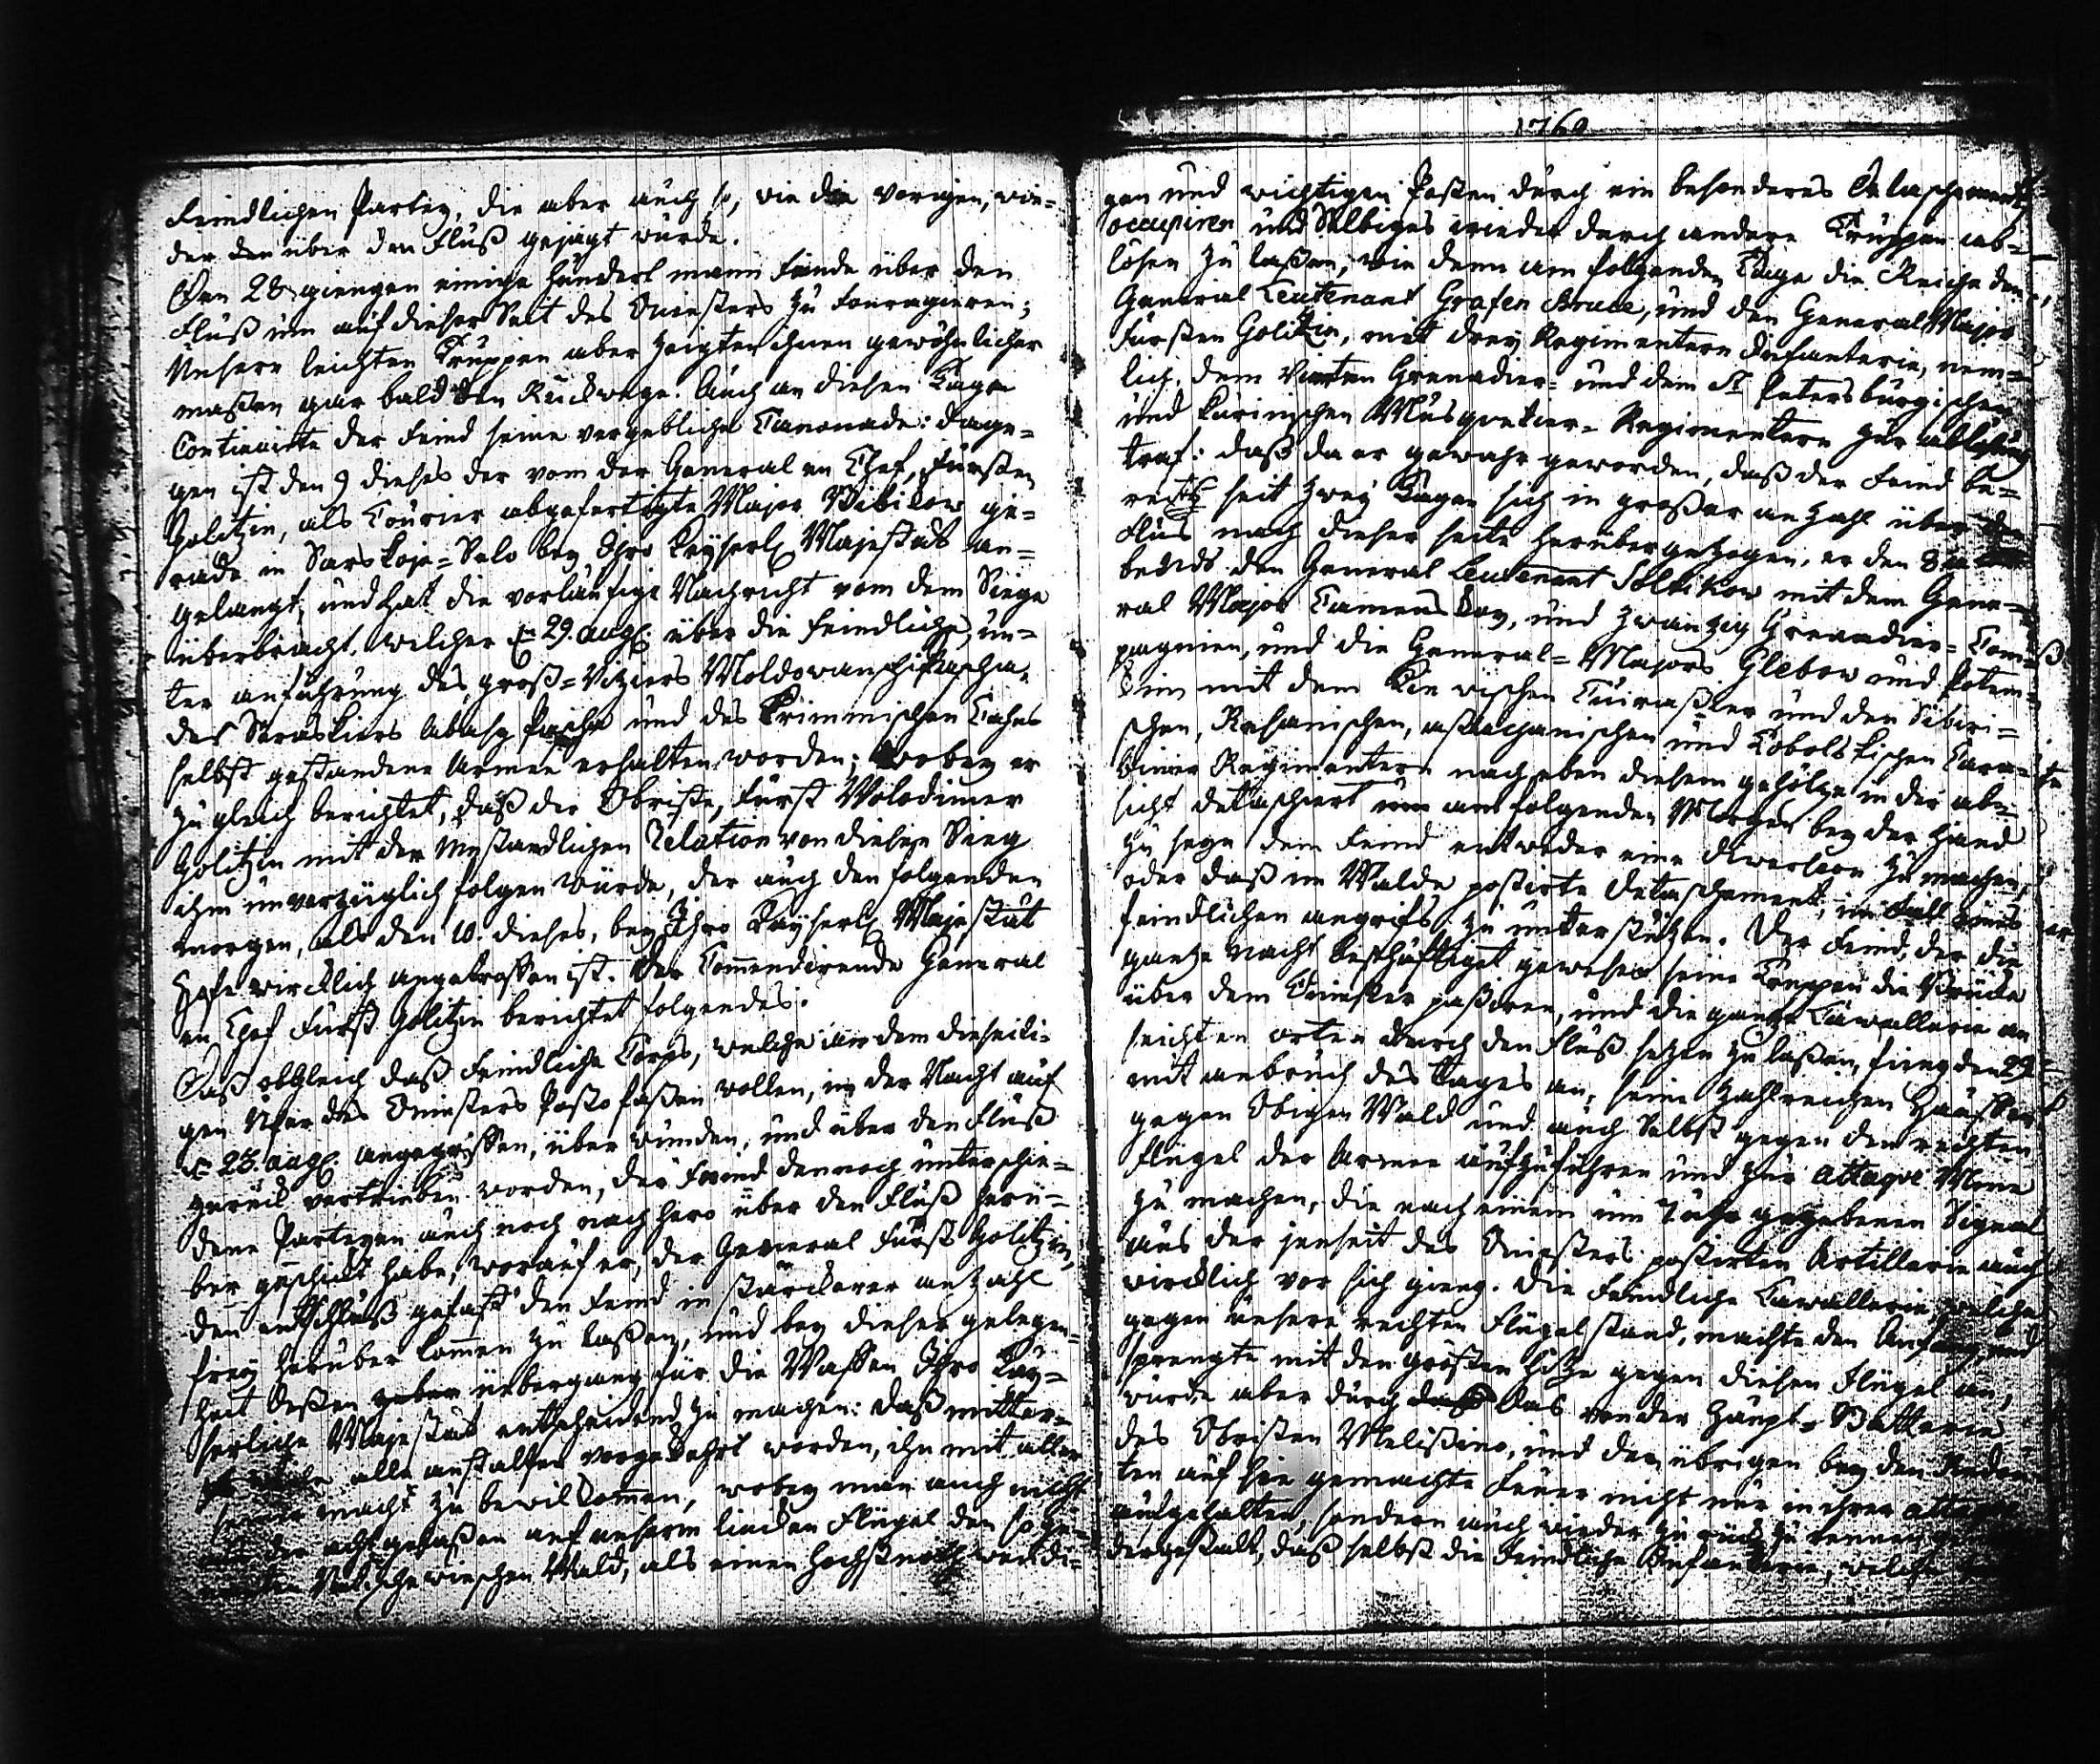 feindlichen Partey, die aber auch so, wie die vorigen, wie-
der den über den Fluß gejagt wurde.
Den 28 giengen einige hundert mann Feinde über den
Fluß um auf dieser Seit des Dniesters zu fouragieren;
Unsere leichten Truppen aber zeigten ihnen gewöhnlicher
maßen gar bald den Rückwege. Auch an diesen Tage
Continuirte der Feind seine vergebliche Canonade: dage-
gen ist den 9 dieses der vom der General en Chef, Fürsten
Golitzin, als Courier abgefertigte Major Bibikow ge-
rade in Sarskoje-Selo bey Ihro Kayserl. Majestät an-
gelangt, und hat die vorläufige Nachricht von dem Siege
überbracht, welcher d. 29. aug. über die feindliche, un-
ter anführung des groß-Viziers Moldowanschi Pascha,
des Seraskiers Abasy Pascha und des Krimmischen Cahns
selbst gestandene Armee erhalten worden; wobey er
zugleich berichtet, daß der Obriste, Fürst Wolodimer
Golitzin mit der umständlichen Relation von diesem Sieg
ihm unverzüglich folgen würde, der auch den folgenden
morgen, als den 10. dieses, bey Ihro Kayserl. Majestät
Hofe wircklich angetroffen ist. Der Commendirende General
en Chef Fürst Golitzin berichtet folgendes:
Daß obgleich daß feindliche Corps, welche an dem dieseiti-
gen Ufer des Dniesters Posto faßen wollen, in der Nacht auf
d. 23. aug. angegriffen, überwunden, und über den Fluß
zurück vertrieben worden, der Feind dennoch unterschie-
dene Parteyen auch noch nachhero über den Fluß herü-
ber geschickt habe, worauf er, der General Fürst Golitzin,
den entschluß gefast den Feind in stärckerer anzahl
frey herüber kommen zu laßen, und bey dieser gelegen-
heit deßen übergang für die Waffen Ihro Kay-
serliche Majestät entscheidend zu machen: daß mitler-
alle anstalten vorgekehrt worden, ihn mit aller
seiner macht zu bewilkommen, wobey man auch nicht
der acht gelaßen auf unserm lincken Flügel den so ge-
Wald, als einen höchstnothwendi-
1769
gen und wichtigen Posten durch ein besonderes Detaschement
occupiren und Selbiges wieder durch andere Truppen ab-
lösen zu laßen, wie denn am folgenden Tage die Reihe den
General Leutenant Grafen Bruce, und den General Major
Fürsten Golitzin, mit drey Regimentern Infanterie, nem-
lich, dem Vierten Grenadier- und dem St. Petersburgischen
und Kurinschen Musquetier-Regimentern zur ablösung
traf: daß da er gewahr geworden, daß der Feind be-
reits seit zwey Tagen sich in großer anzahl über den
Flus nach dieser seite herübergezogen, er den 28
abends den General Leutenant Soltikow mit dem Gene-
ral Major Kamenskoy, und zwanzig Grenadier-Com-
pagnien, und die General-Majors Glebow und Potem-
kin mit dem Kiewischen Cuiraßier und den Sibiri-
schen, Resanischen, astrachanischen und Tobolskischen Cara-
binier Regimentern nach eben diesem gehölze in der ab-
sicht detaschiert um am folgenden Morgen bey der Hand
zu seyn dem Feind entweder eine diversion zu machen,
oder daß im Walde postirte Detaschement, im Fall eines
feindlichen angrifs, zu unterstützen. Der Feind, der die
gantze Nacht beschäftiget gewesen seine Truppen die Brücke
über dem Dniester paßiren, und die gantze Cavallerie an
seichten orten durch den Fluß setzen zu laßen, fing den 29
mit anbruch des Tages an, seine zahlreichen Hauffen
gegen Obigen Wald und auch Selbst gegen den rechten
Flügel der Armee aufzuführen und zur attaque Mine
zu machen, die nach einem um 7 uhr gegebenen Signal
aus der jenseit des Dniesters postirten Artillerie auch
wircklich vor sich gieng. Die feindliche Cavallerie, welche
gegen unsere rechten Flügel stand, machte den Anfang, und
sprengte mit der grösten Hitze gegen diesen Flügel an,
wurde aber durch das von der Haupt-Batterie
des Obristen Melißino, und den übrigen bey den Redou-
ten auf sie gemachte Feuer nicht nur in ihrer attaque
aufgehalten, sondern auch wieder zurück zu rennen
dergestalt, daß selbst die feindliche Infanterie, welche